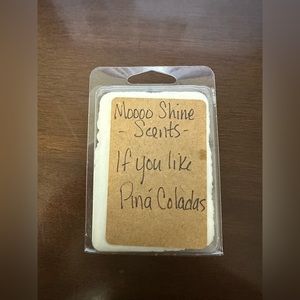 Moooo Shine
- Scents -
If you like
Piná Coladas